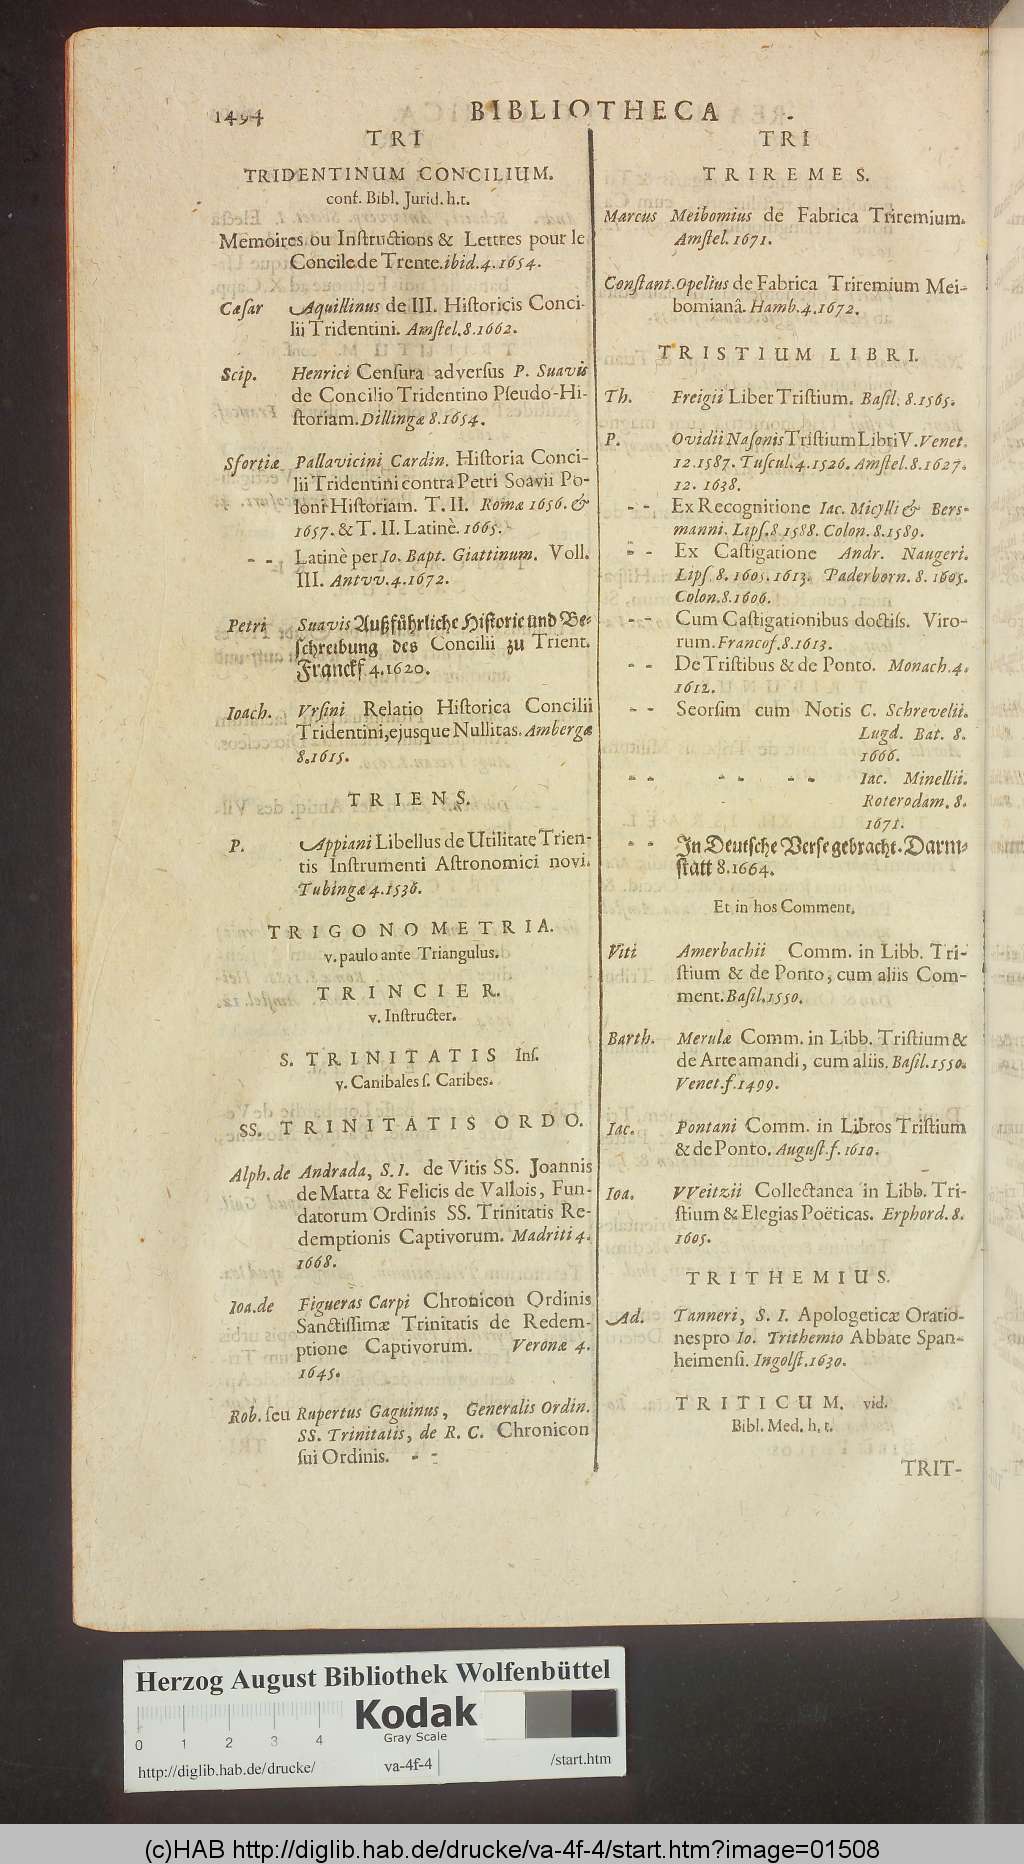 1494 BIBLIOTHECA
TRI
TRIDENTINUM CONCILIUM.
conf. Bibl. Jurid. h.t.
Memoires ou Inſtructions & Lettres pour le
Concile de Trente. ibid. 4. 1654.
Cæſar Aquillinus de III. Hiſtoricis Conci-
lii Tridentini. Amſtel. 8. 1662.
Scip. Henrici Cenſura adverſus P. Suavis
de Concilio Tridentino Pſeudo-Hi-
ſtoriam. Dillingæ 8. 1654.
Sfortiæ Pallavicini Cardin. Hiſtoria Conci-
lii Tridentini contra Petri Soavii Po-
loni Hiſtoriam. T. II. Romæ 1656. &
1657. & T. II. Latinè. 1665.
- - Latinè per Io. Bapt. Giattinum. Voll.
III. Antvv. 4. 1672.
Petri Suavis Außführliche Hiſtorie und Be-
ſchreibung des Concilii zu Trient.
Franckf 4. 1620.
Ioach. Vrſini Relatio Hiſtorica Concilii
Tridentini, ejusque Nullitas. Ambergæ
8. 1615.
TRIENS.
P. Appiani Libellus de Utilitate Trien-
tis Inſtrumenti Aſtronomici novi.
Tubingæ 4. 1536.
TRIGONOMETRIA.
v. paulo ante Triangulus.
TRINCIER.
v. Inſtructer.
S. TRINITATIS Inſ.
v. Canibales ſ. Caribes.
SS. TRINITATIS ORDO.
Alph. de Andrada, S. I. de Vitis SS. Joannis
de Matta & Felicis de Vallois, Fun-
datorum Ordinis SS. Trinitatis Re-
demptionis Captivorum. Madriti 4.
1668.
Ioa. de Figueras Carpi Chronicon Ordinis
Sanctiſſimæ Trinitatis de Redem-
ptione Captivorum. Veronæ 4.
1645.
Rob. ſeu Rupertus Gaguinus, Generalis Ordin.
SS. Trinitatis, de R. C. Chronicon
ſui Ordinis. - -
TRI
TRIREMES.
Marcus Meibomius de Fabrica Triremium.
Amſtel. 1671.
Conſtant. Opelius de Fabrica Triremium Mei-
bomianâ. Hamb. 4. 1672.
TRISTIUM LIBRI.
Th. Freigii Liber Triſtium. Baſil. 8. 1565.
P. Ovidii Naſonis Triſtium Libri V. Venet.
12. 1587. Tuſcul. 4. 1526. Amſtel. 8. 1627.
12. 1638.
- - Ex Recognitione Iac. Micylli & Bers-
manni. Lipſ. 8. 1588. Colon. 8. 1589.
- - Ex Caſtigatione Andr. Naugeri.
Lipſ. 8. 1605. 1613. Paderborn. 8. 1605.
Colon. 8. 1606.
- - Cum Caſtigationibus doctiſs. Viro-
rum. Francof. 8. 1613.
- - De Triſtibus & de Ponto. Monach. 4.
1612.
- - Seorſim cum Notis C. Schrevelii.
Lugd. Bat. 8.
1666.
- - - - - - Iac. Minellii.
Roterodam. 8.
1671.
- - In Deutſche Verſe gebracht. Darm-
ſtatt 8. 1664.
Et in hos Comment.
Viti Amerbachii Comm. in Libb. Tri-
ſtium & de Ponto, cum aliis Com-
ment. Baſil. 1550.
Barth. Merulæ Comm. in Libb. Triſtium &
de Arte amandi, cum aliis. Baſil. 1550.
Venet. f. 1499.
Iac. Pontani Comm. in Libros Triſtium
& de Ponto. Auguſt. f. 1610.
Ioa. VVeitzii Collectanea in Libb. Tri-
ſtium & Elegias Poëticas. Erphord. 8.
1605.
TRITHEMIUS.
Ad. Tanneri, S. I. Apologeticæ Oratio-
nes pro Io. Trithemio Abbate Span-
heimenſi. Ingolſt. 1630.
TRITICUM. vid.
Bibl. Med. h. t.
TRIT-
Herzog August Bibliothek Wolfenbüttel
Kodak
Gray Scale
0 1 2 3 4
http://diglib.hab.de/drucke/ va-4f-4 /start.htm
(c)HAB http://diglib.hab.de/drucke/va-4f-4/start.htm?image=01508